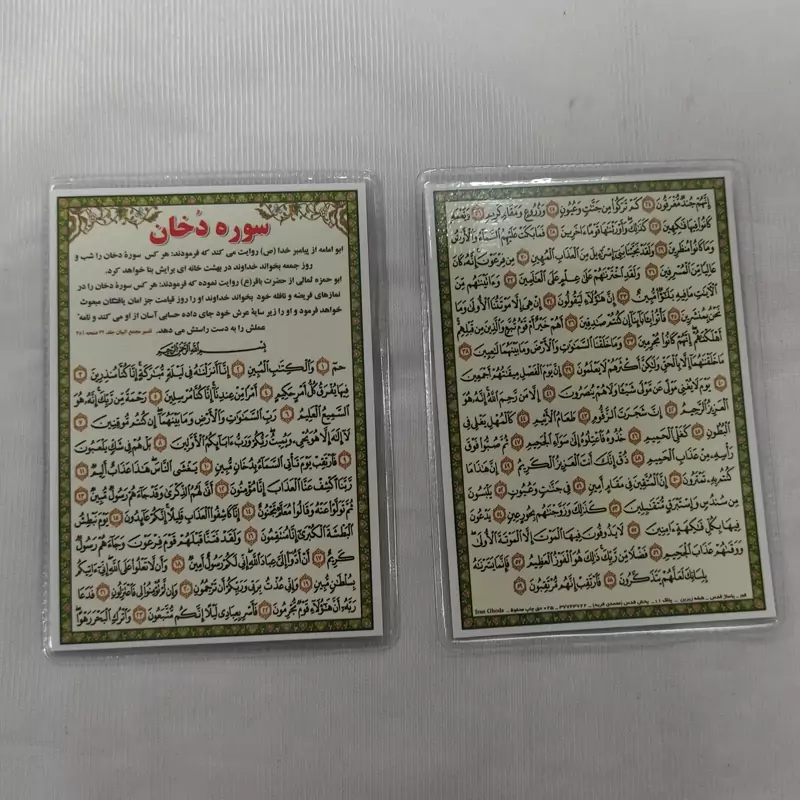 سوره دُخان
ابو امامه از پیامبر خدا (ص) روایت می کند که فرمودند: هر کس سورهٔ دخان را شب و
روز جمعه بخواند خداوند در بهشت خانه ای برایش بنا خواهد کرد.
ابو حمزه ثمالی از حضرت باقر(ع) روایت نموده که فرمودند: هر کس سورهٔ دخان را در
نمازهای فریضه و نافله خود بخواند خداوند او را روز قیامت جزء امان یافتگان مبعوث
خواهد فرمود و او را زیر سایهٔ عرش خود جای داده حسابی آسان از او می کند و نامهٔ
عملش را به دست راستش می دهد. تفسیر مجمع البیان جلد ۲۲ صفحه
بِسْمِ اللَّهِ الرَّحْمَنِ الرَّحِيمِ
حم ۱ وَالْكِتَابِ الْمُبِينِ ۲ إِنَّا أَنْزَلْنَاهُ فِي لَيْلَةٍ مُبَارَكَةٍ إِنَّا كُنَّا مُنْذِرِينَ ۳
فِيهَا يُفْرَقُ كُلُّ أَمْرٍ حَكِيمٍ ۴ أَمْرًا مِنْ عِنْدِنَا إِنَّا كُنَّا مُرْسِلِينَ ۵ رَحْمَةً مِنْ رَبِّكَ إِنَّهُ هُوَ
السَّمِيعُ الْعَلِيمُ ۶ رَبِّ السَّمَاوَاتِ وَالْأَرْضِ وَمَا بَيْنَهُمَا إِنْ كُنْتُمْ مُوقِنِينَ ۷
لَا إِلَهَ إِلَّا هُوَ يُحْيِي وَيُمِيتُ رَبُّكُمْ وَرَبُّ آبَائِكُمُ الْأَوَّلِينَ ۸ بَلْ هُمْ فِي شَكٍّ يَلْعَبُونَ
۹ فَارْتَقِبْ يَوْمَ تَأْتِي السَّمَاءُ بِدُخَانٍ مُبِينٍ ۱۰ يَغْشَى النَّاسَ هَذَا عَذَابٌ أَلِيمٌ ۱۱
رَبَّنَا اكْشِفْ عَنَّا الْعَذَابَ إِنَّا مُؤْمِنُونَ ۱۲ أَنَّى لَهُمُ الذِّكْرَى وَقَدْ جَاءَهُمْ رَسُولٌ مُبِينٌ ۱۳
ثُمَّ تَوَلَّوْا عَنْهُ وَقَالُوا مُعَلَّمٌ مَجْنُونٌ ۱۴ إِنَّا كَاشِفُو الْعَذَابِ قَلِيلًا إِنَّكُمْ عَائِدُونَ ۱۵ يَوْمَ نَبْطِشُ
الْبَطْشَةَ الْكُبْرَى إِنَّا مُنْتَقِمُونَ ۱۶ وَلَقَدْ فَتَنَّا قَبْلَهُمْ قَوْمَ فِرْعَوْنَ وَجَاءَهُمْ رَسُولٌ
كَرِيمٌ ۱۷ أَنْ أَدُّوا إِلَيَّ عِبَادَ اللَّهِ إِنِّي لَكُمْ رَسُولٌ أَمِينٌ ۱۸ وَأَنْ لَا تَعْلُوا عَلَى اللَّهِ إِنِّي آتِيكُمْ
بِسُلْطَانٍ مُبِينٍ ۱۹ وَإِنِّي عُذْتُ بِرَبِّي وَرَبِّكُمْ أَنْ تَرْجُمُونِ ۲۰ وَإِنْ لَمْ تُؤْمِنُوا لِي فَاعْتَزِلُونِ ۲۱ فَدَعَا
رَبَّهُ أَنَّ هَؤُلَاءِ قَوْمٌ مُجْرِمُونَ ۲۲ فَأَسْرِ بِعِبَادِي لَيْلًا إِنَّكُمْ مُتَّبَعُونَ ۲۳ وَاتْرُكِ الْبَحْرَ رَهْوًا
إِنَّهُمْ جُنْدٌ مُغْرَقُونَ ۲۴ كَمْ تَرَكُوا مِنْ جَنَّاتٍ وَعُيُونٍ ۲۵ وَزُرُوعٍ وَمَقَامٍ كَرِيمٍ ۲۶ وَنَعْمَةٍ
كَانُوا فِيهَا فَاكِهِينَ ۲۷ كَذَلِكَ وَأَوْرَثْنَاهَا قَوْمًا آخَرِينَ ۲۸ فَمَا بَكَتْ عَلَيْهِمُ السَّمَاءُ وَالْأَرْضُ
وَمَا كَانُوا مُنْظَرِينَ ۲۹ وَلَقَدْ نَجَّيْنَا بَنِي إِسْرَائِيلَ مِنَ الْعَذَابِ الْمُهِينِ ۳۰ مِنْ فِرْعَوْنَ إِنَّهُ كَانَ
عَالِيًا مِنَ الْمُسْرِفِينَ ۳۱ وَلَقَدِ اخْتَرْنَاهُمْ عَلَى عِلْمٍ عَلَى الْعَالَمِينَ ۳۲ وَآتَيْنَاهُمْ مِنَ
الْآيَاتِ مَا فِيهِ بَلَاءٌ مُبِينٌ ۳۳ إِنَّ هَؤُلَاءِ لَيَقُولُونَ ۳۴ إِنْ هِيَ إِلَّا مَوْتَتُنَا الْأُولَى وَمَا
نَحْنُ بِمُنْشَرِينَ ۳۵ فَأْتُوا بِآبَائِنَا إِنْ كُنْتُمْ صَادِقِينَ ۳۶ أَهُمْ خَيْرٌ أَمْ قَوْمُ تُبَّعٍ وَالَّذِينَ مِنْ قَبْلِهِمْ
أَهْلَكْنَاهُمْ إِنَّهُمْ كَانُوا مُجْرِمِينَ ۳۷ وَمَا خَلَقْنَا السَّمَاوَاتِ وَالْأَرْضَ وَمَا بَيْنَهُمَا لَاعِبِينَ ۳۸
مَا خَلَقْنَاهُمَا إِلَّا بِالْحَقِّ وَلَكِنَّ أَكْثَرَهُمْ لَا يَعْلَمُونَ ۳۹ إِنَّ يَوْمَ الْفَصْلِ مِيقَاتُهُمْ أَجْمَعِينَ
۴۰ يَوْمَ لَا يُغْنِي مَوْلًى عَنْ مَوْلًى شَيْئًا وَلَا هُمْ يُنْصَرُونَ ۴۱ إِلَّا مَنْ رَحِمَ اللَّهُ إِنَّهُ هُوَ
الْعَزِيزُ الرَّحِيمُ ۴۲ إِنَّ شَجَرَتَ الزَّقُّومِ ۴۳ طَعَامُ الْأَثِيمِ ۴۴ كَالْمُهْلِ يَغْلِي فِي
الْبُطُونِ ۴۵ كَغَلْيِ الْحَمِيمِ ۴۶ خُذُوهُ فَاعْتِلُوهُ إِلَى سَوَاءِ الْجَحِيمِ ۴۷ ثُمَّ صُبُّوا فَوْقَ
رَأْسِهِ مِنْ عَذَابِ الْحَمِيمِ ۴۸ ذُقْ إِنَّكَ أَنْتَ الْعَزِيزُ الْكَرِيمُ ۴۹ إِنَّ هَذَا مَا
كُنْتُمْ بِهِ تَمْتَرُونَ ۵۰ إِنَّ الْمُتَّقِينَ فِي مَقَامٍ أَمِينٍ ۵۱ فِي جَنَّاتٍ وَعُيُونٍ ۵۲ يَلْبَسُونَ
مِنْ سُنْدُسٍ وَإِسْتَبْرَقٍ مُتَقَابِلِينَ ۵۳ كَذَلِكَ وَزَوَّجْنَاهُمْ بِحُورٍ عِينٍ ۵۴ يَدْعُونَ
فِيهَا بِكُلِّ فَاكِهَةٍ آمِنِينَ ۵۵ لَا يَذُوقُونَ فِيهَا الْمَوْتَ إِلَّا الْمَوْتَةَ الْأُولَى
وَوَقَاهُمْ عَذَابَ الْجَحِيمِ ۵۶ فَضْلًا مِنْ رَبِّكَ ذَلِكَ هُوَ الْفَوْزُ الْعَظِيمُ ۵۷ فَإِنَّمَا يَسَّرْنَاهُ
بِلِسَانِكَ لَعَلَّهُمْ يَتَذَكَّرُونَ ۵۸ فَارْتَقِبْ إِنَّهُمْ مُرْتَقِبُونَ ۵۹
قم _ پاساژ قدس _ طبقه زیرین _ پلاک ۱۱ _ پخش قدس